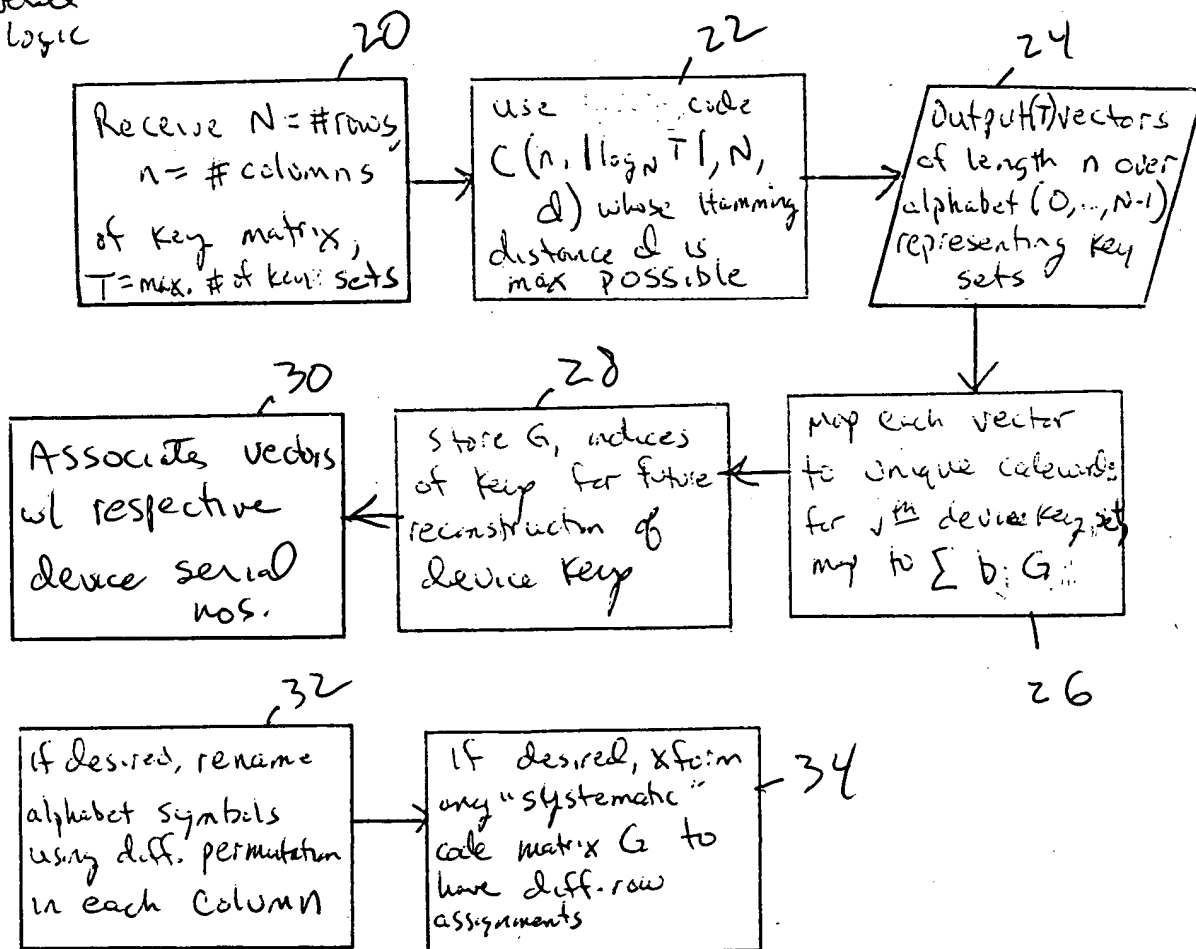 logic
20
Receive N = # rows,
n = # columns
of key matrix,
T = max. # of key sets
22
use code
C (n, ⌈log_N T⌉, N,
d) whose Hamming
distance d is
max possible
24
Output (T) vectors
of length n over
alphabet (0,...,N-1)
representing key
sets
30
Associates vectors
w/ respective
device serial
nos.
28
Store G, indices
of keys for future
reconstruction of
device keys
Map each vector
to unique codewords
for vth device key set,
map to Σ b G
26
32
If desired, rename
alphabet symbols
using diff. permutation
in each column
If desired, xform
any "systematic"
code matrix G to
have diff. row
assignments
34